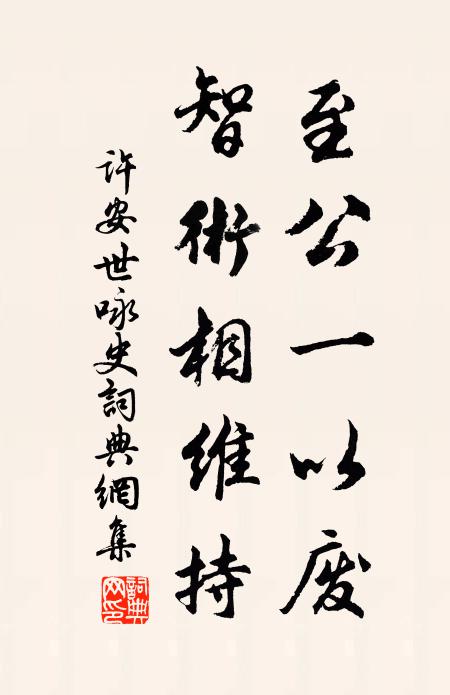 至公一以废
智術相維持
許安世咏史詞典網集
詞典网印